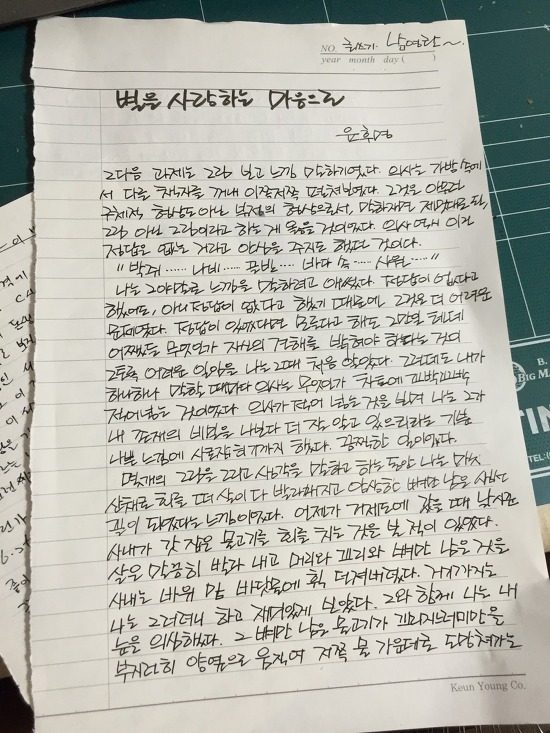 NO. 글쓰기. 남연란~.
year month day ( )
별을 사랑하는 마음으로
윤후명
그다음 과제는 그림 보고 느낌 말하기였다. 의사는 가방 속에
서 다른 책자를 꺼내 이쪽저쪽 펼쳐보였다. 그것은 아무런
구체적 형상도 아닌 형상으로서, 말하자면 제멋대로 된,
그림 아닌 그림이라고 하는 게 옳을 것이었다. 의사 역시 이건
정답은 없는 거라고 안심을 주지도 했던 것이다.
" 박쥐 ...... 나비 ...... 꽃밭 ...... 바다 속 ..... 사원 ..... "
나는 그야말로 느낌을 말하려고 애썼다. 정답이 없다고
했어도, 아니 정답이 없다고 했기 때문에 그것은 더 어려운
문제였다. 정답이 있었다면 모른다고 해도 그만일 텐데
어쨌든 무엇인가 자신의 견해를 밝혀야 한다는 것이
그토록 어려운 일임을 나는 그때 처음 알았다. 그런데도 내가
하나하나 말할 때마다 의사는 무엇인가 차트에 꼬박꼬박
적어넣는 것이었다. 의사가 적어 넣는 것을 보며 나는 그가
내 존재의 비밀을 나보다 더 잘 알고 있으리라는 기분
나쁜 느낌에 사로잡히기까지 했다. 끔찍한 일이었다.
몇개의 그림을 그리고 생각을 말하고 하는 동안 나는 마치
산채로 회를 떠 살이 다 발라내지고 앙상한 뼈만 남은 생선
꼴이 되었다는 느낌이었다. 언젠가 거제도에 갔을 때 낚시꾼
사내가 갓 잡은 물고기를 회를 치는 것을 본 적이 있었다.
살은 말끔히 발라 내고 머리와 꼬리와 뼈만 남은 것을
사내는 바위 밑 바닷물에 휙 던져버렸다. 거기까지는
나는 그러려니 하고 재미있게 보았다. 그와 함께 나는 내
눈을 의심했다. 그 뼈만 남은 물고기가 꼬리지느러미만을
부지런히 양옆으로 움직여 저쪽 물 가운데로 도망쳐가는
Keun Young Co.
B.
BIG MA
TIN
TEL:(